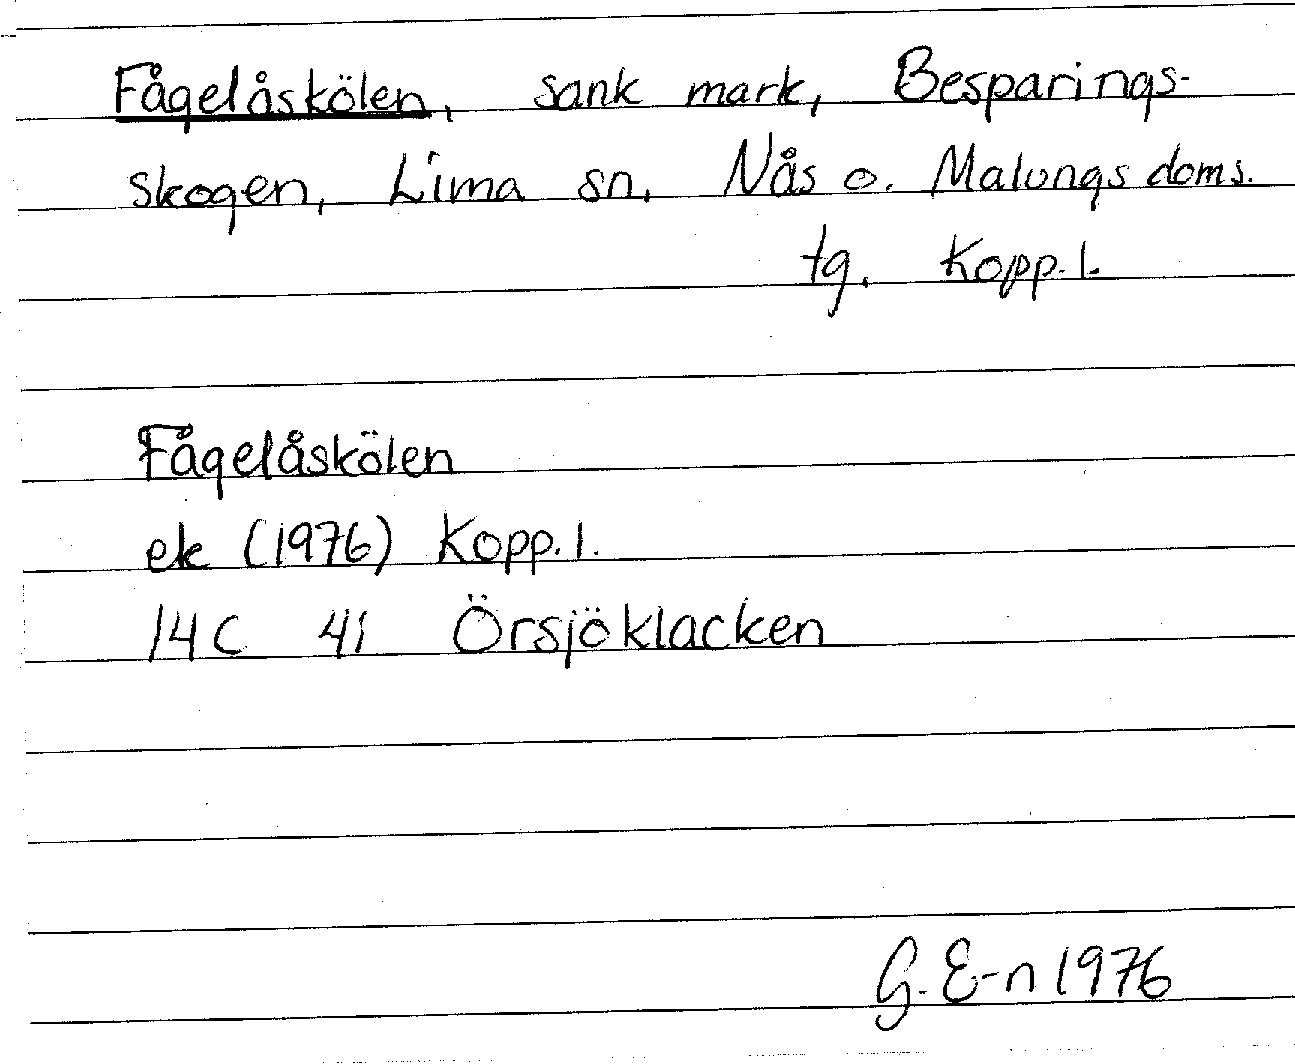 Fågelåskölen, sank mark, Besparings-
skogen, Lima sn. Nås o. Malungs doms.
tg. Kopp. l.
Fågelåskölen
ek (1976) Kopp. l.
14C 4i Örsjöklacken
G. E-n 1976